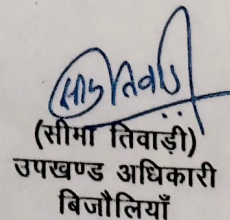 (सीमा तिवाड़ी)
उपखण्ड अधिकारी
बिजौलियाँ